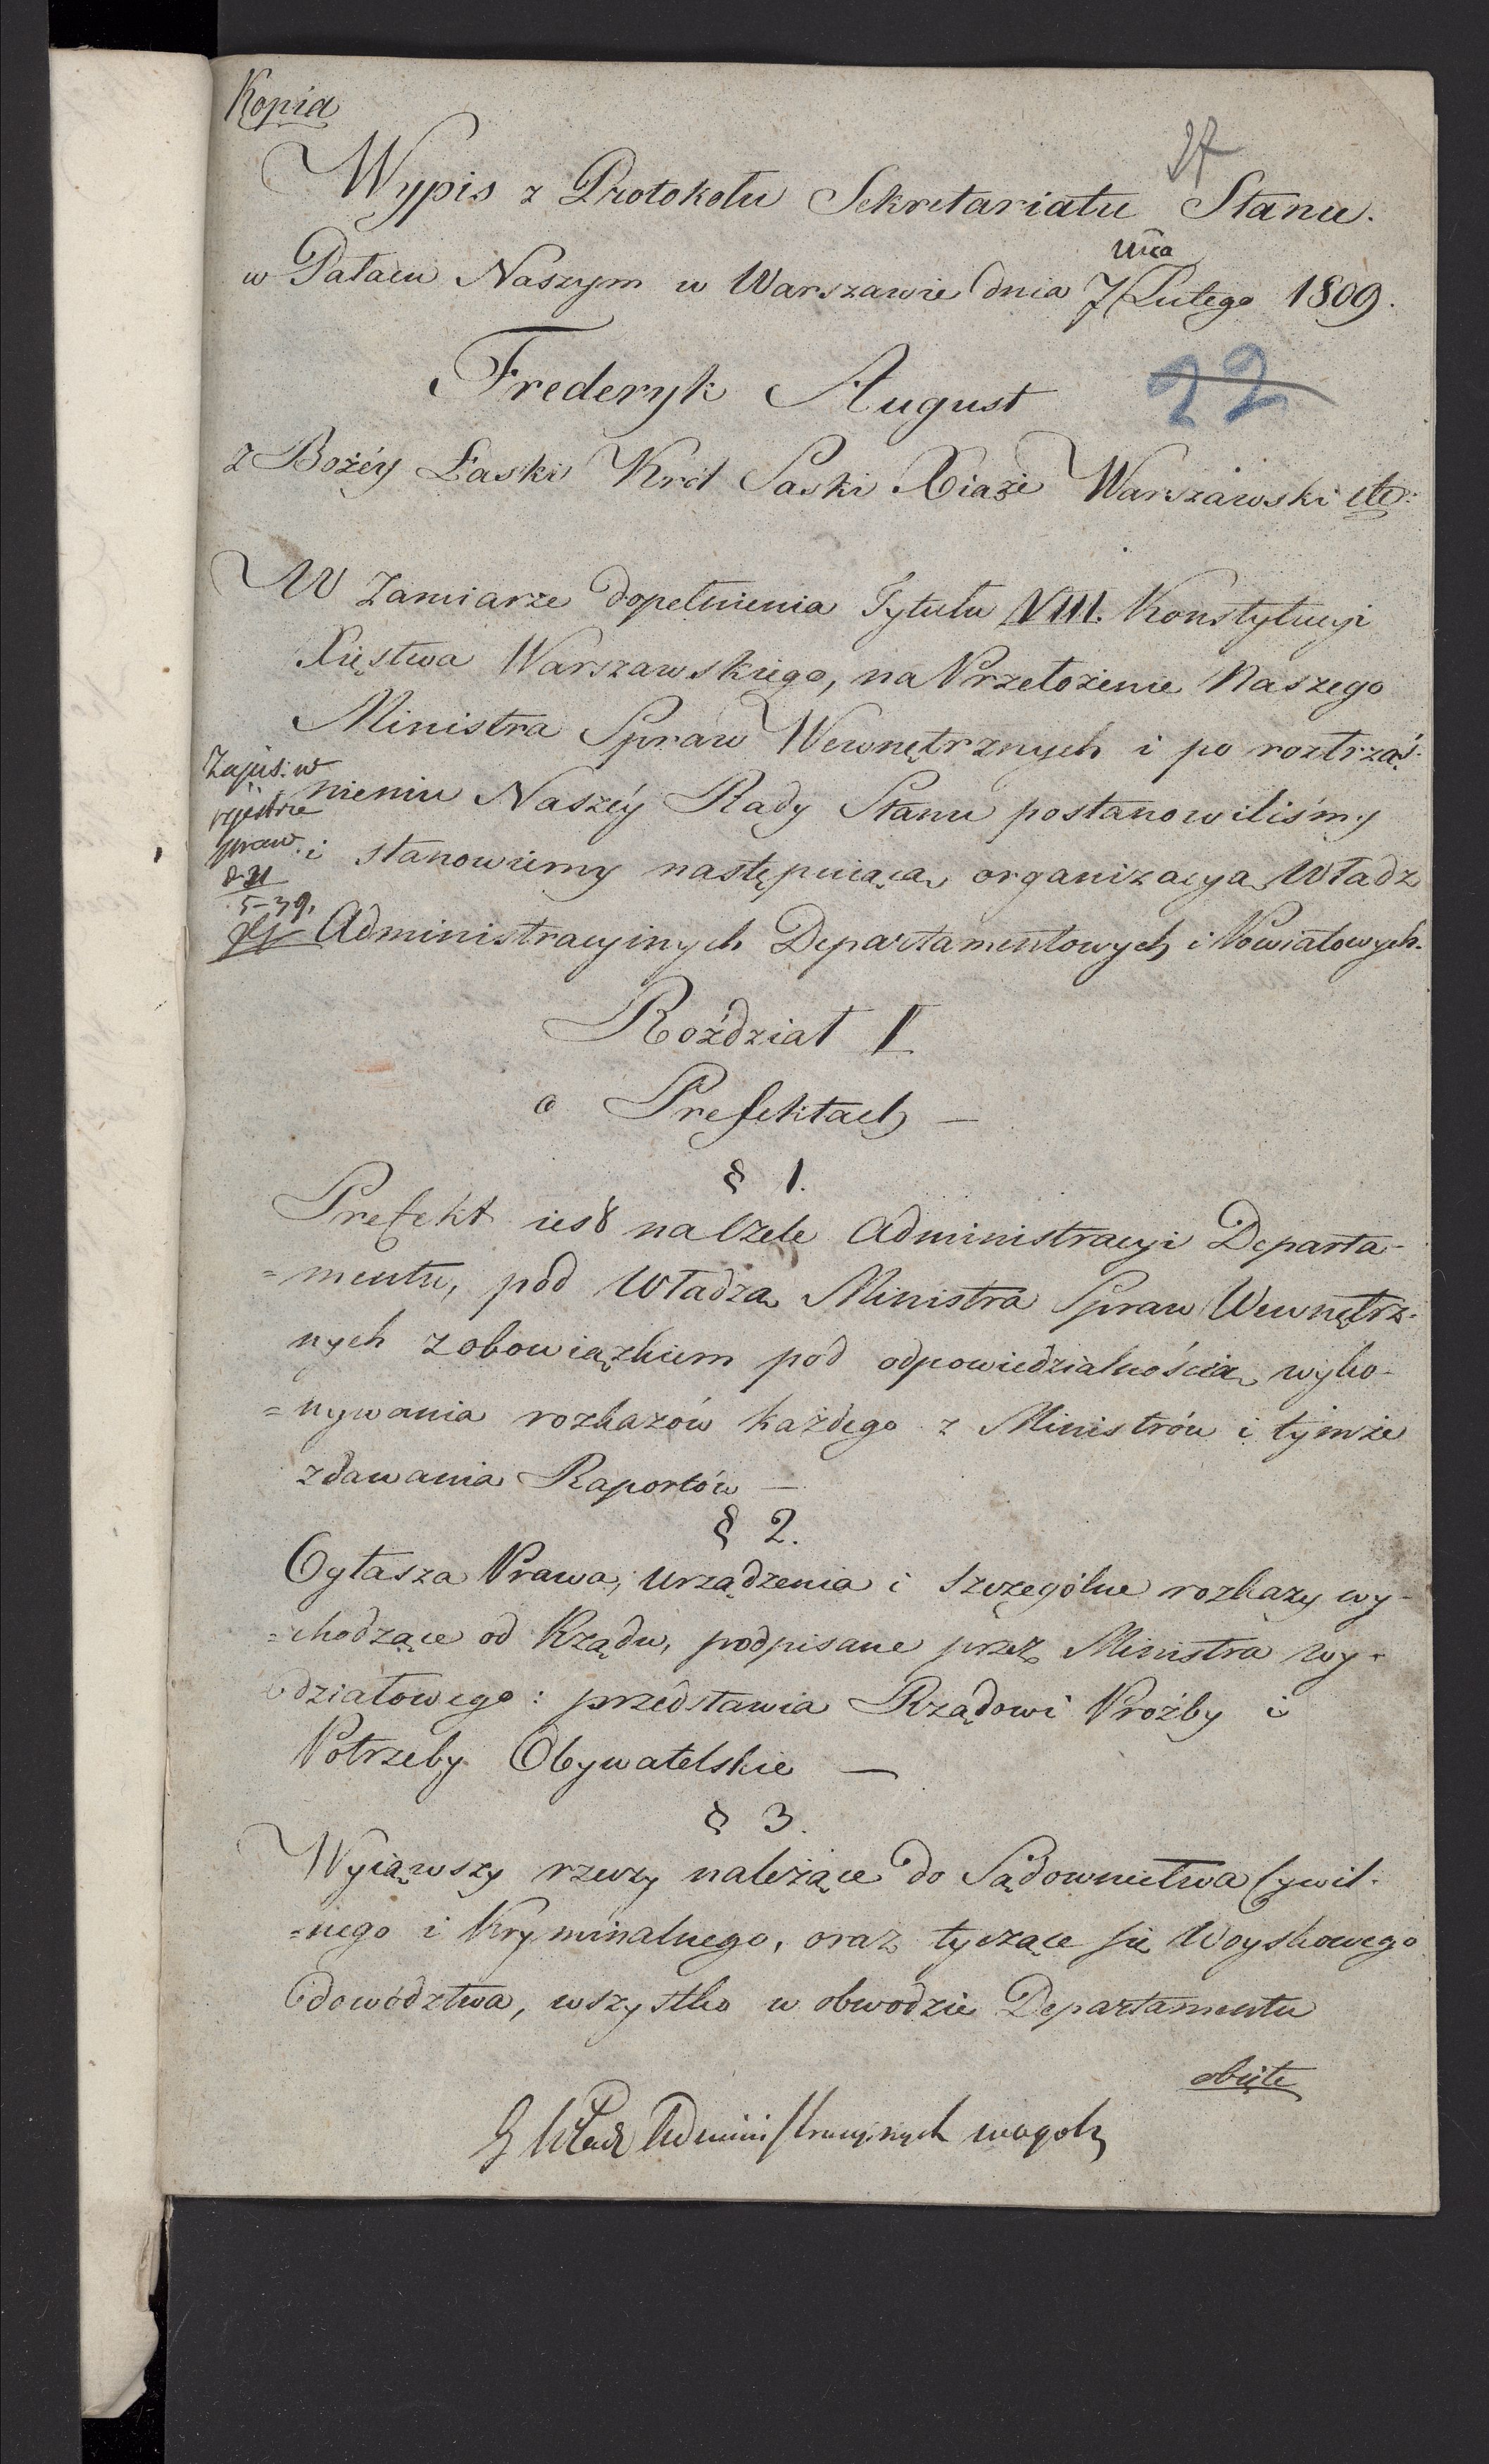 Kopia
27
Wypis z Protokołu Sekretariatu Stanu.
w Pałacu Naszym w Warszawie dnia 7 Lutego 1809.
Frederyk August
22
z Bożéy Łaski Król Saski Xiąże Warszawski etc:
W Zamiarze dopełnienia Tytułu VIII. Konstytucyi
Xięstwa Warszawskiego, na Przełożenie Naszego
Ministra Spraw Wewnętrznych i po roztrząś-
nieniu Naszéy Rady Stanu postanowiliśmy
i stanowiemy następuiącą organizacyą Władz
Administracyinych Departamentowych i Powiatowych.
Zapis: w
rejestrze
spraw.
Roździał I
o Prefektach —
§ 1.
Prefekt iest na Czele Administracyi Departa-
=mentu, pod Władzą Ministra Spraw Wewnętrz-
nych z obowiązkiem pod odpowiedzialnością wyko-
=nywania rozkazów każdego z Ministrów i tymże
zdawania Raportów —
§ 2.
Ogłasza Prawa, urządzenia i szczególne rozkazy wy-
=chodzące od Rządu, podpisane przez Ministra wy-
działowego: przedstawia Rządowi Proźby i
Potrzeby Obywatelskie —
§ 3.
Wyiąwszy rzeczy należące do Sądownictwa Cywil-
=nego i Kryminalnego, oraz tyczące się Woyskowego
dowództwa, wszystko w obwodzie Departamentu
obięte
Administracyinych wogole